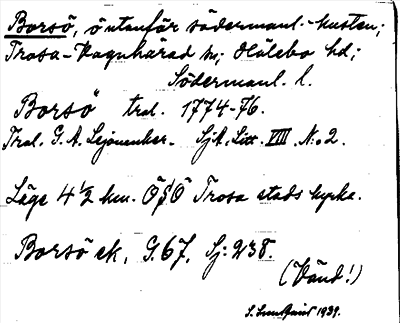 Borsö, ö utanför södermanl.-kusten;
Trosa-Vagnhärad sn; Hölebo hd;
Södermanl. l.
Borsö tral. 1774-76.
Tral. G. A. Lejonanker. SjA, Litt. VIII N:o 2.
Läge 4 1/2 km. ÖSÖ Trosa stads kyrka.
Borsö ek, G. 67, Sj: 238.
(Vänd!)
S. Lundqvist 1939.